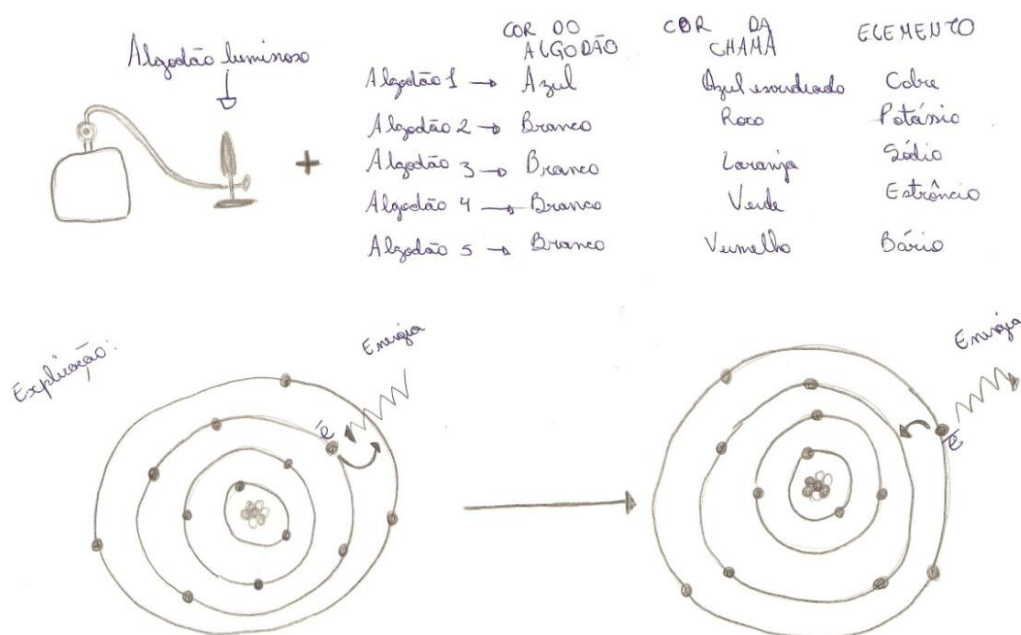 COR DO ALGODÃO COR DA CHAMA ELEMENTO
Algodão luminoso
Algodão 1 → Azul Azul esverdeado Cobre
Algodão 2 → Branco Roxo Potássio
Algodão 3 → Branco Laranja Sódio
Algodão 4 → Branco Verde Estrôncio
Algodão 5 → Branco Vermelho Bário
+
Explicação:
Energia
Energia
e-
e-